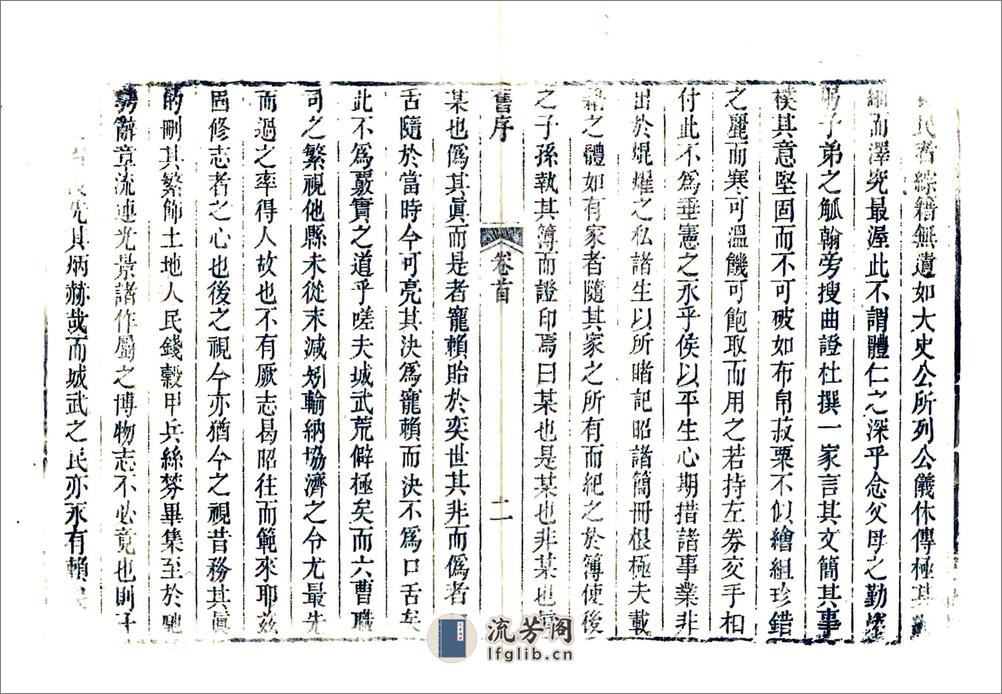 民者綜籍無遺如大史公所列公儀休傳極其
而澤究最渥此不謂體仁之深乎念父母之勤
子弟之觚翰旁搜曲證杜撰一家言其文簡其事
樸其意堅固而不可破如布帛菽粟不似繪組珍錯
之麗而寒可溫饑可飽取而用之若持左券交手相
付此不為垂憲之永乎侯以平生心期措諸事業非
出於焜燿之私諸生以所睹記昭諸簡冊根極夫載
籍之體如有家者隨其家之所有而紀之於簿使後
之子孫執其簿而證印焉曰某也是某也非某也眞
舊序
卷首
二
某也僞其眞而是者寵賴貽於奕世其非而僞者口
舌隨於當時今可亮其決爲寵賴而決不爲口舌矣
此不爲覈實之道乎嗟夫城武荒僻極矣而六曹職
司之繁視他縣未從末減矧輸納協濟之令尤最先
而過之率得人故也不有厥志曷昭往而範來耶茲
固修志者之心也後之視今亦猶今之視昔務其眞
的刪其繁飾土地人民錢穀甲兵絲棼畢集至於馳
騁辭章流連光景諸作屬之博物志不必竟也則于
先其炳赫哉而城武之民亦永有賴
流芳阁
lfglib.cn